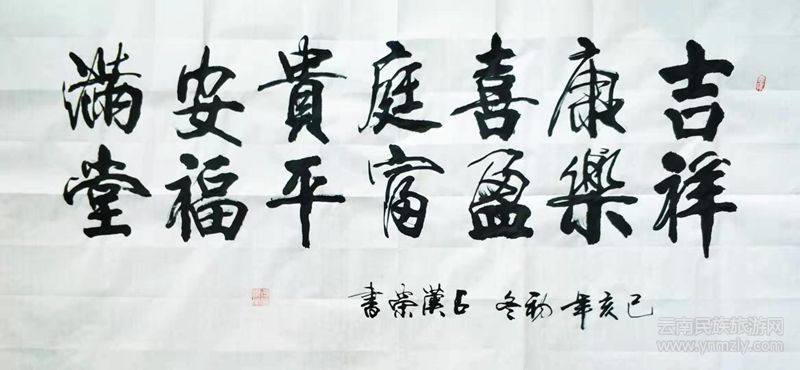 吉祥
康樂
喜盈
庭富
貴平
安福
滿堂
己亥年 初冬 漢 書
云南民族旅游网
www.ynmzly.com